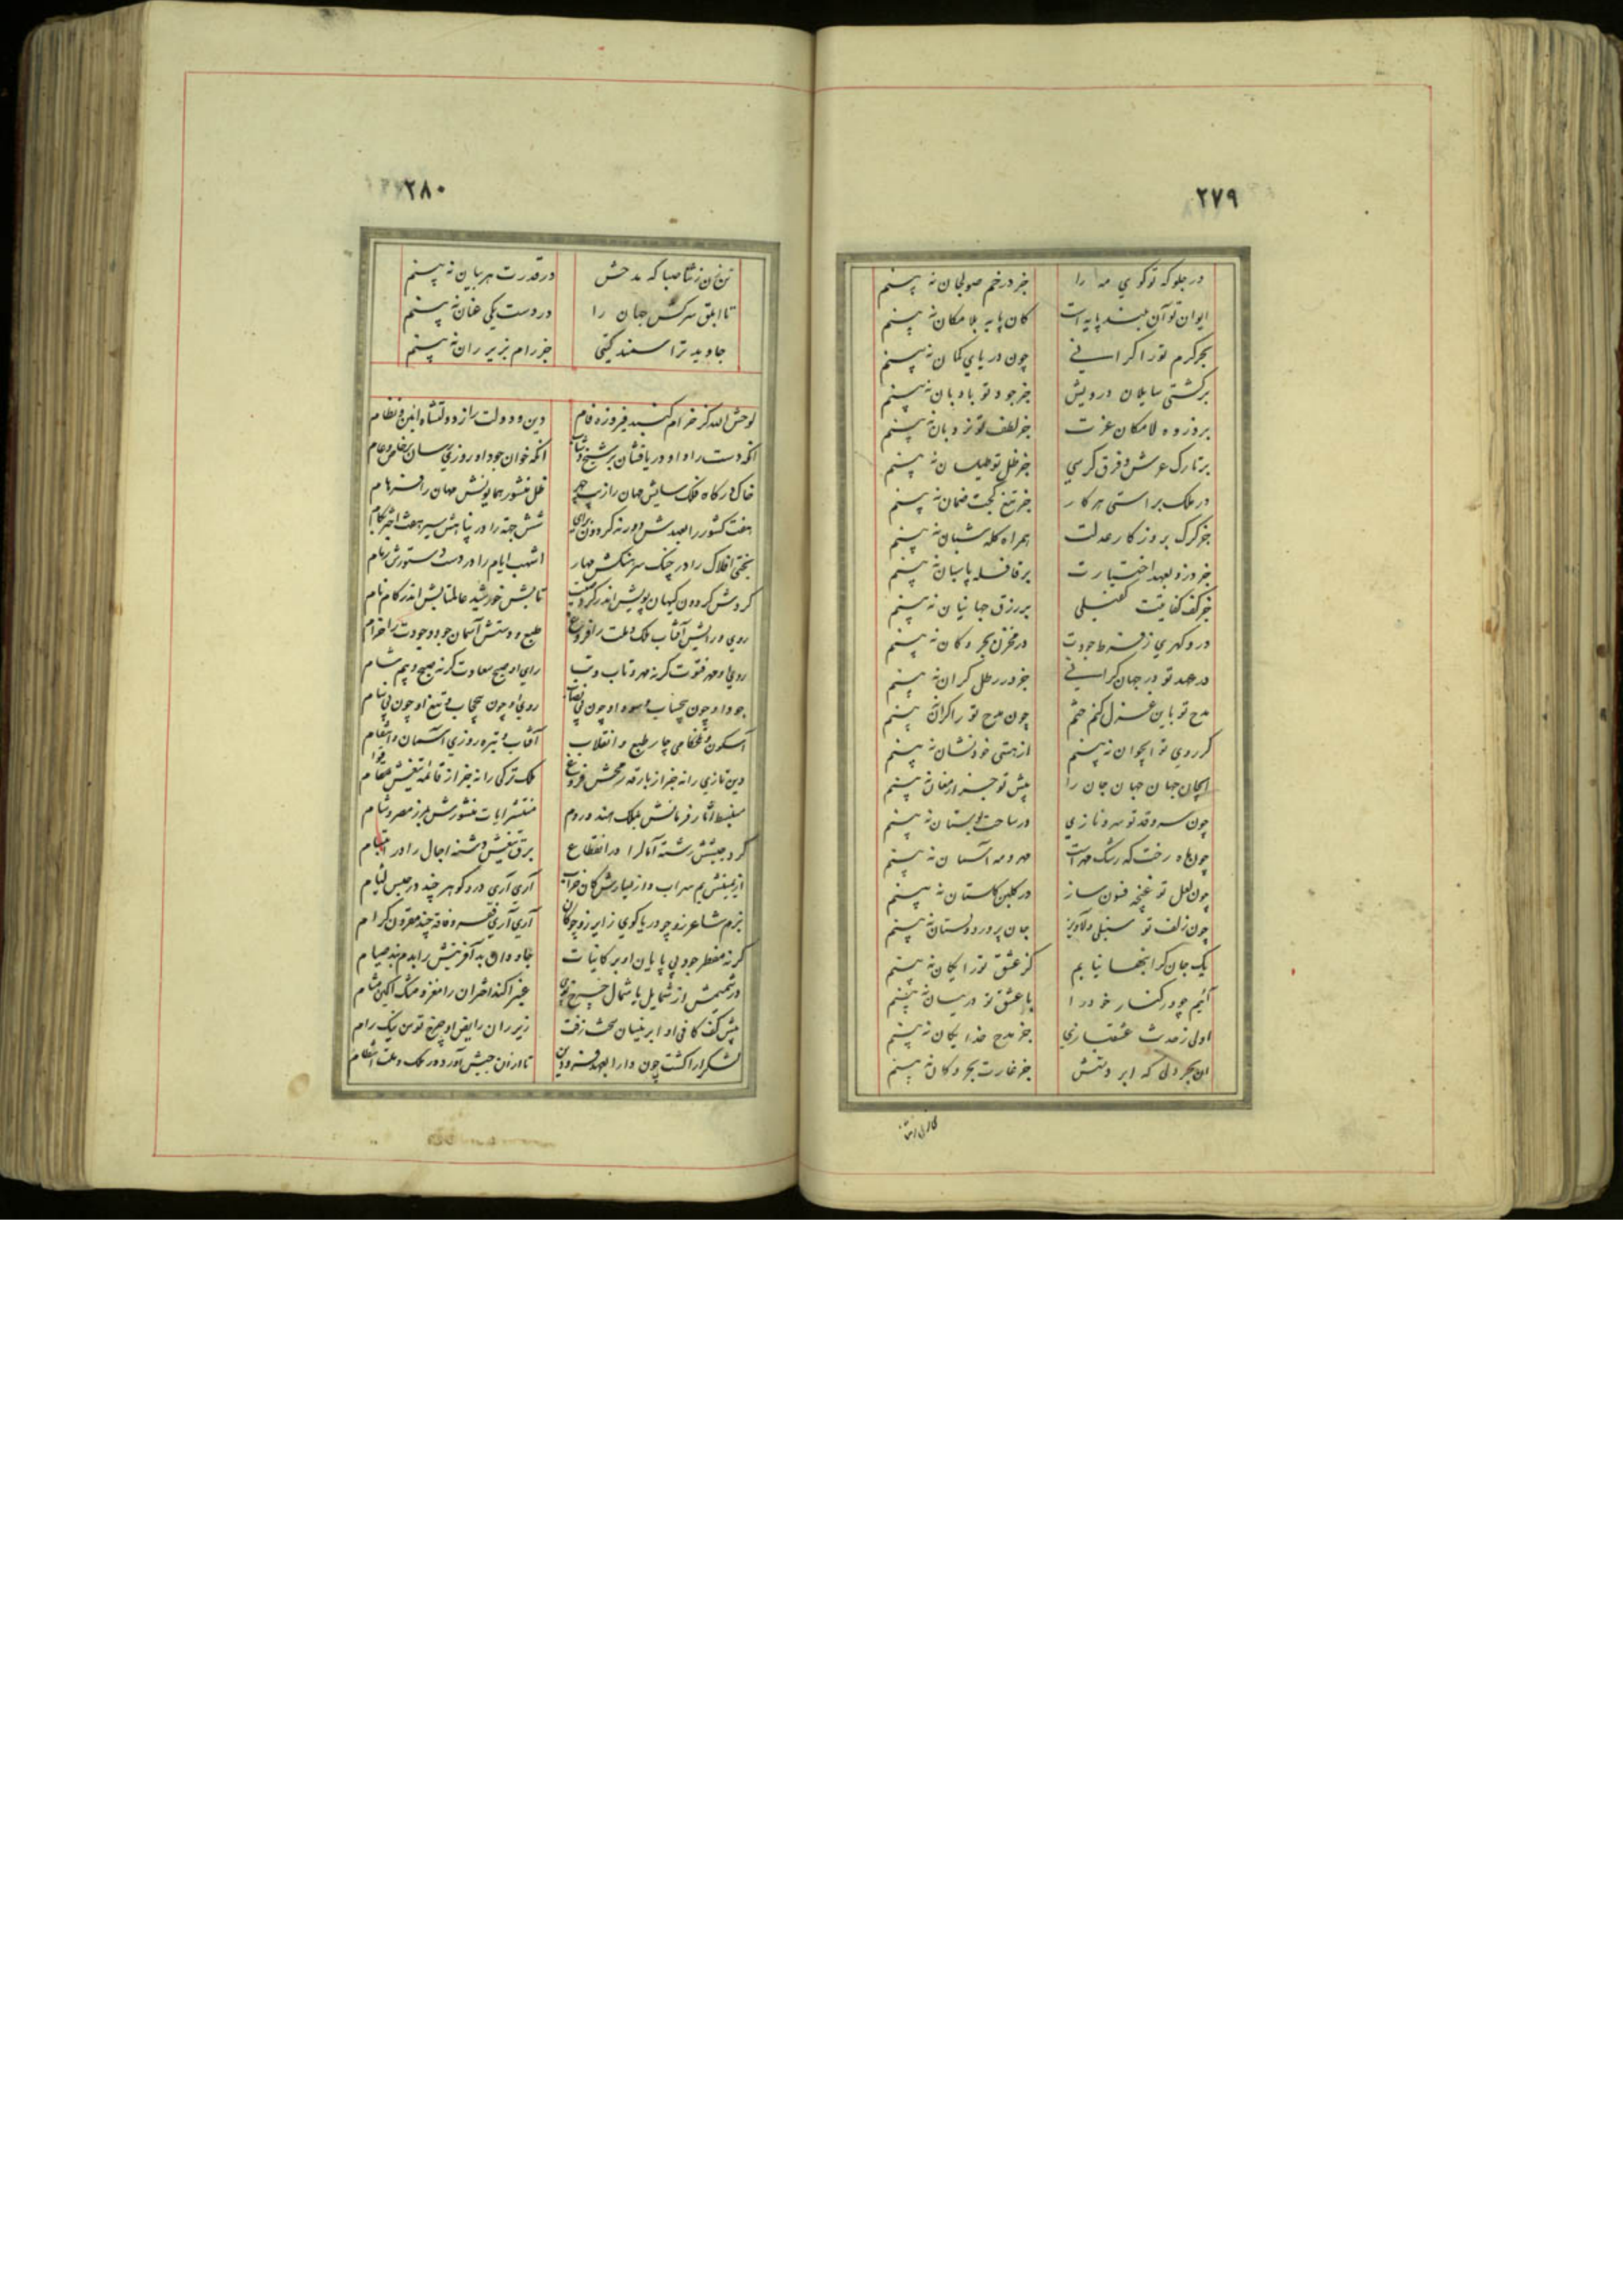 ۲۷۹
در جلوکه توکوي مه را جز در خم صولجان نه بینم
ایوان تو آن بلند پایه است کان پایه بلامکان نه بینم
بحر کرم تو را کرانے چون دریاي کمان نه بینم
بر کشتی سایلان درویش جز جود تو بادبان نه بینم
بر ذروه لامکان عزت جز لطف تو نردبان نه بینم
بر تارک عرش و فرق کرسي جز ظل تو طیلسان نه بینم
در ملک براستی هر کار جز تیغ کجت ضمان نه بینم
جز کرک بروزکار عدلت همراه کله شبان نه بینم
جز دزد بعهد اختیارت بر قافله پاسبان نه بینم
جز کف کفایتت کفیلی بر رزق جهانیان نه بینم
در و کهري ز فرط جودت در مخزن بحر و کان نه بینم
در عهد تو در جهان کرانے جز در رطل کران نه بینم
مدح تو باین غزل کنم ختم چون مدح تو را کران نه بینم
کر روي تو ایجوان نه بینم از هستی خود نشان نه بینم
ایجان جهان جهان جان را پیش تو جز ارمغان نه بینم
چون سرو قد تو سرو نازي در ساحت بوستان نه بینم
چون ماه رخت که رشک مهر است مهر و مه آسمان نه بینم
چون لعل تو غنچه فسون ساز در کلبن کلستان نه بینم
چون زلف تو سنبلی دلاویز جان پرور دوستان نه بینم
یک جان کرانبها نیابم کز عشق تو رایکان نه بینم
آئیم چو در کنار خود را با عشق تو در میان نه بینم
اولی ز حدیث عشقبازي جز مدح خدایکان نه بینم
ان بحر دلی که ابر دستش جز غارت بحر و کان نه بینم
۲۸۰
زن صبا که مدحش در قدرت هر بیان نه بینم
تا ابلق سرکش جهان را در دست یکی عنان نه بینم
جاوید ترا سمند کیتی جز رام بزیر ران نه بینم
لوحش الله کز خرام کنبد فیروزه فام دین و دولت را ز دولتشاه این نظام
انکه دست راد او دریافشان بر شیخ و شاب انکه خوان جود او روزي رسان بر خاص و عام
خاک درکاه فلک سایش جهان را زیب چهر ظل منشور همایونش مهان را فر هام
هفت کشور را بعهدش دور نه کردون براي شش جهة را در پناهش سیر هفت اختر بکام
بختی افلاک را در چنک سرهنکش مهار اشهب ایام را در دست دستورش زمام
کردش کردون کیهان پویش اندر کرد تابش خورشید عالمتابش اندر کام نام
روي و رایش آفتاب ملک و ملت را فروغ طبع و دستش آسمان جود وجودت را خرام
روي او مهر فتوت کر نه مهر و تاب و تب راي او صبح سعادت کر نه صبح و بیم شام
جود او چون بیحساب و سود او چون بی نصاب روي او چون بیحجاب و تیغ او چون بی نیام
آسکون و تلخکامی چار طبع و انقلاب آفتاب و تیره روزي آسمان و انتقام
دین تازي را نه جز از بارقه رمحش فروغ ملک ترکی را نه جز از قائمه تیغش قوام
منبسط آثار فرمانش بملک هند و روم منتشر ایات منشورش بمرز مصر و شام
کرد جیشش رشته آمال را در انقطاع برق تیغش دشنه اجال را در
از یمینش یم سراب و از یسارش کان خراب آري آري در و کوهر چند در حبس لئام
بزم شاعر زو چو دریا کوي زایر زو چو کان آري آري فقر و فاقه چند مقرون کرام
کر نه مفطر جود بی پایان او بر کاینات جاودان بد آفرینش را بدم بند صیام
در شمیمش از شمایل یا شمال عنبر آکند اختران را مغز و مشک آکین مشام
پیش کف کافی او ابر نیسان سخت زفت زیر ران رایض او چرخ توسن نیک رام
لشکرآرا کشت چون دارا بعهد فرودین تا دران جیش آورد در ملک و ملت انتظام